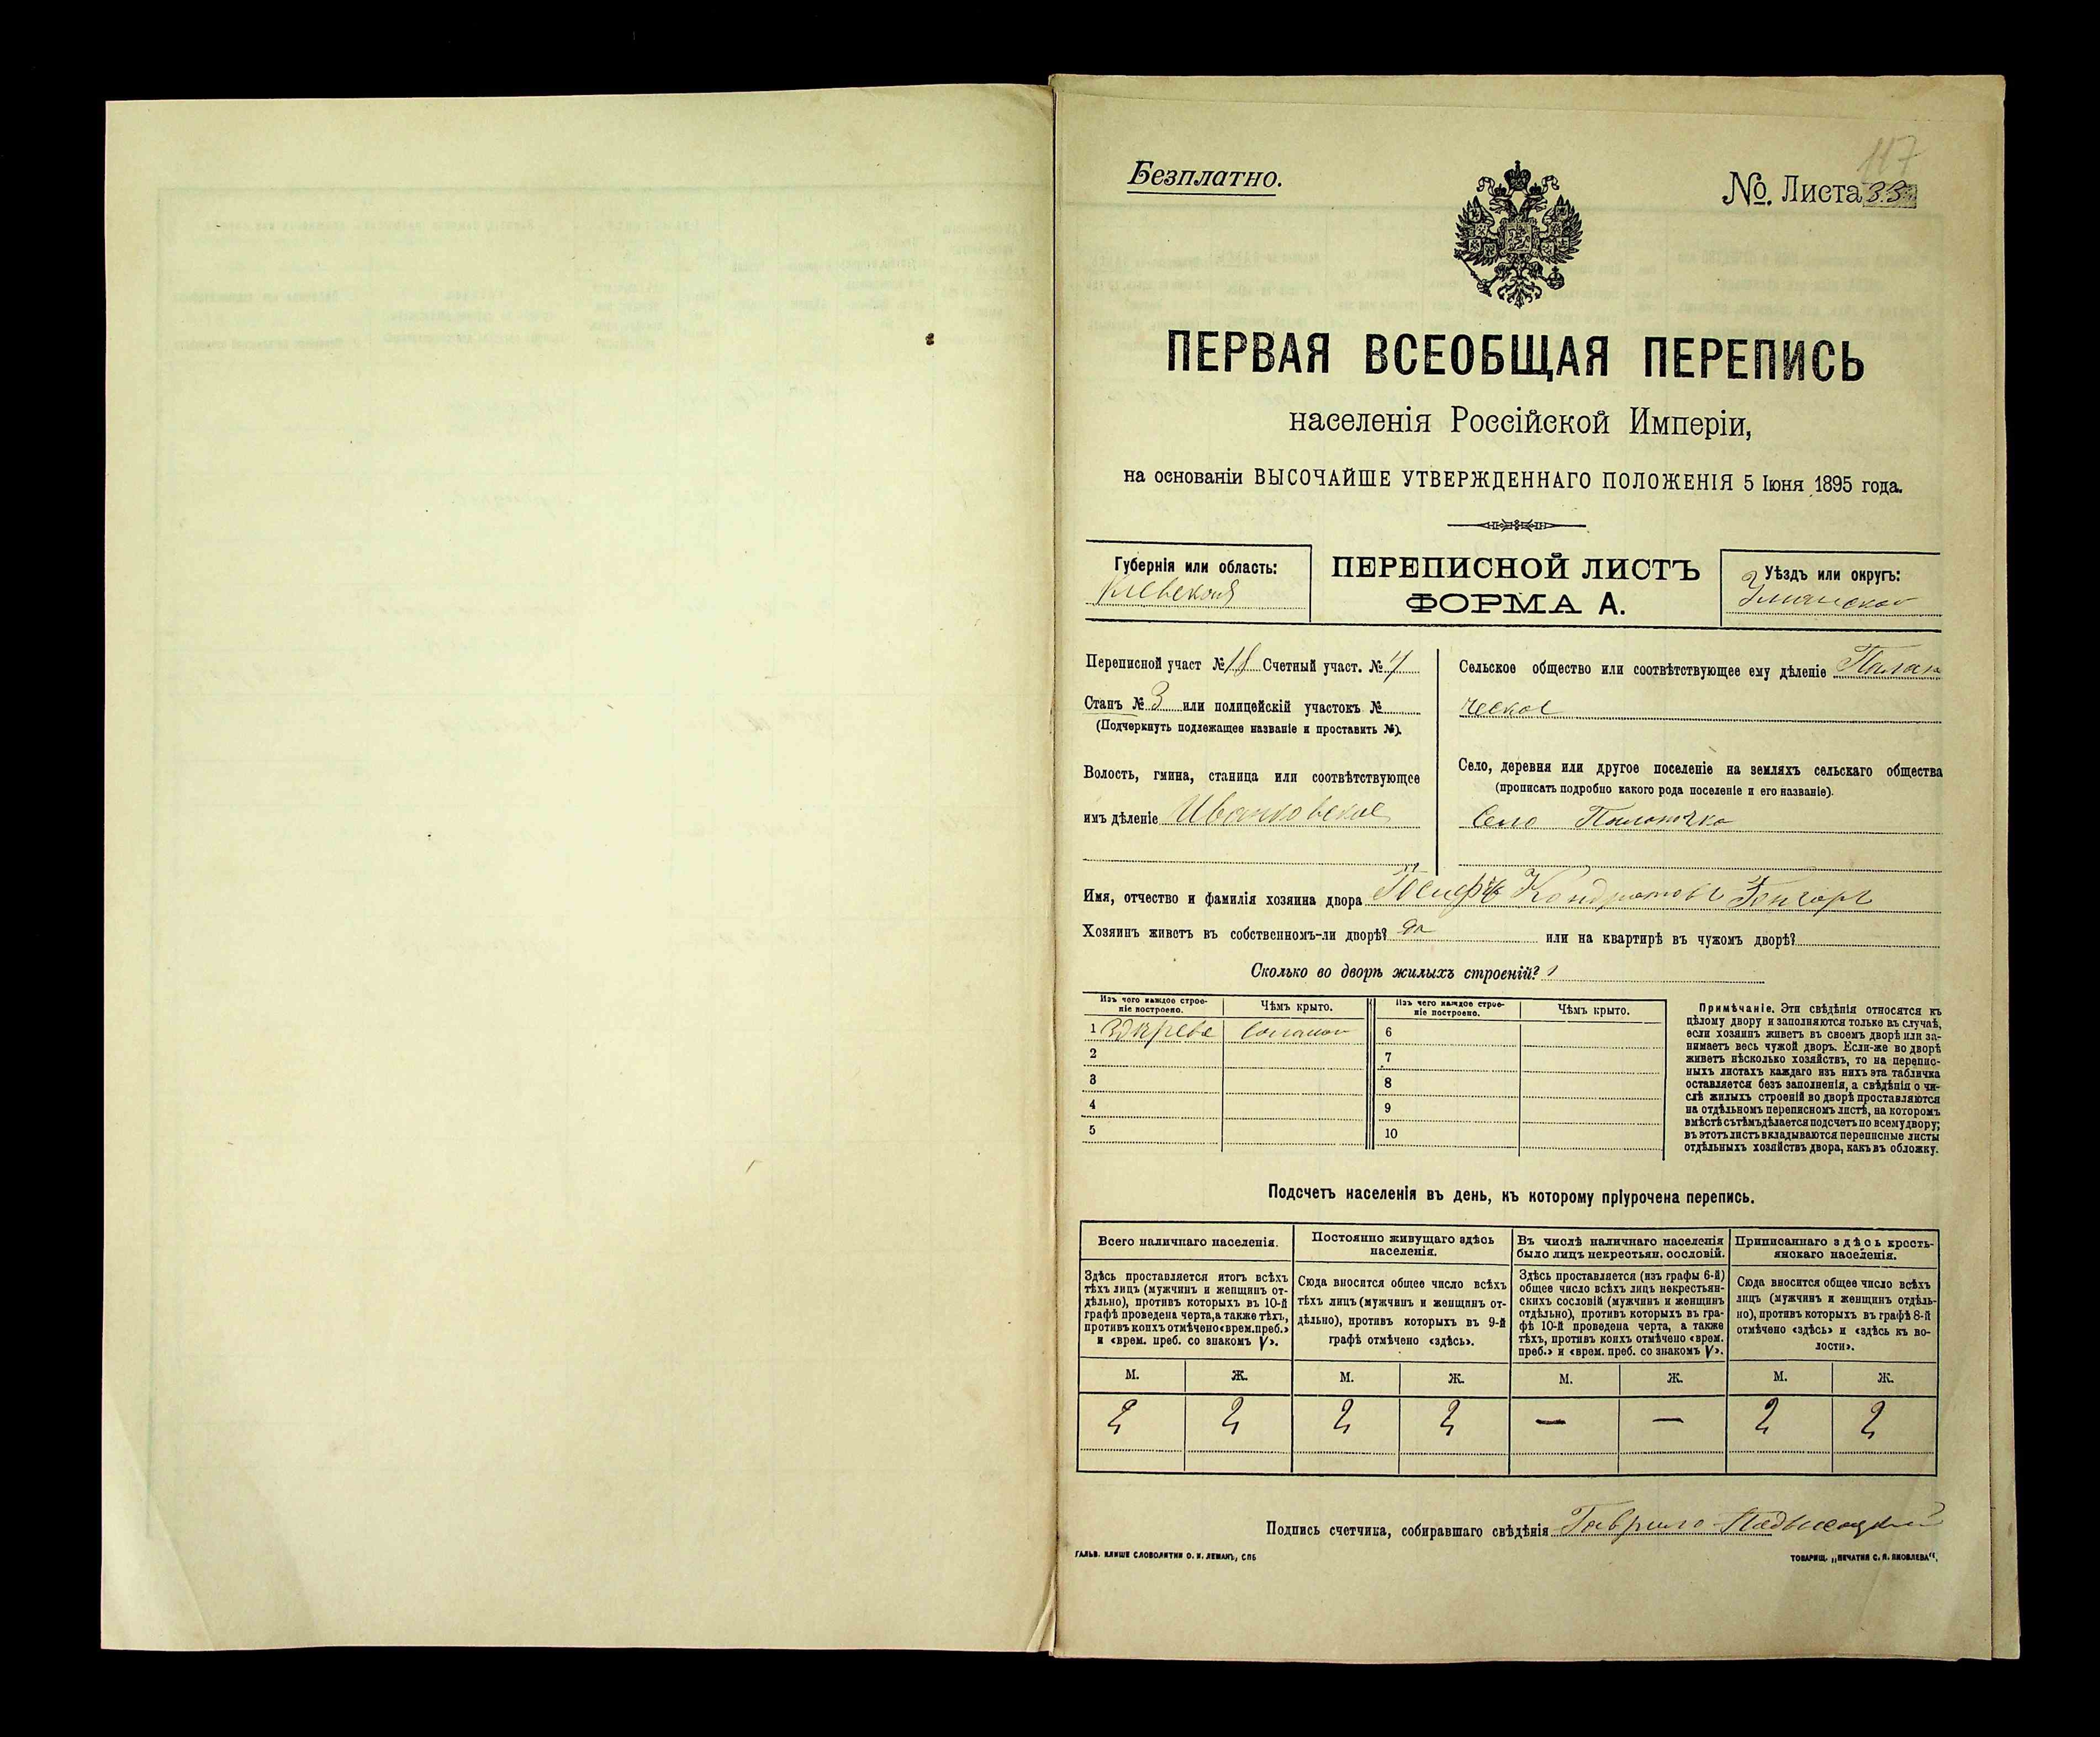 117
Безплатно.
№. Листа 33
ПЕРВАЯ ВСЕОБЩАЯ ПЕРЕПИСЬ
населенія Россійской Имперіи,
на основаніи ВЫСОЧАЙШЕ УТВЕРЖДЕННАГО ПОЛОЖЕНІЯ 5 Іюня 1895 года.
Губернія или область:
Кіевская
ПЕРЕПИСНОЙ ЛИСТЪ
ФОРМА А.
Уѣздъ или округъ:
Уманской
Переписной участ № 18 Счетный участ. № 4
Станъ № 3 или полицейскій участокъ №
(Подчеркнуть подлежащее названіе и проставить №).
Волость, гмина, станица или соотвѣтствующее
имъ дѣленіе Ивановское
Сельское общество или соотвѣтствующее ему дѣленіе Палан
ческое
Село, деревня или другое поселеніе на земляхъ сельскаго общества
(прописать подробно какого рода поселеніе и его названіе).
Село Паланка
Имя, отчество и фамилія хозяина двора Кондратовъ Гончаръ
Хозяинъ живетъ въ собственномъ-ли дворѣ? да или на квартирѣ въ чужомъ дворѣ?
Сколько во дворѣ жилыхъ строеній? 1
Изъ чего каждое строе-
ніе построено.
Чѣмъ крыто.
Изъ чего каждое строе-
ніе построено.
Чѣмъ крыто.
1 соломой 6
2 7
3 8
4 9
5 10
Примѣчаніе. Эти свѣдѣнія относятся къ
цѣлому двору и заполняются только въ случаѣ,
если хозяинъ живетъ въ своемъ дворѣ или за-
нимаетъ весь чужой дворъ. Если-же во дворѣ
живетъ нѣсколько хозяйствъ, то на перепис-
ныхъ листахъ каждаго изъ нихъ эта табличка
оставляется безъ заполненія, а свѣдѣнія о чи-
слѣ жилыхъ строеній во дворѣ проставляются
на отдѣльномъ переписномъ листѣ, на которомъ
вмѣстѣ съ тѣмъ дѣлается подсчетъ по всему двору;
въ этотъ листъ вкладываются переписные листы
отдѣльныхъ хозяйствъ двора, какъ въ обложку.
Подсчетъ населенія въ день, къ которому пріурочена перепись.
Всего наличнаго населенія.
Здѣсь проставляется итогъ всѣхъ
тѣхъ лицъ (мужчинъ и женщинъ от-
дѣльно), противъ которыхъ въ 10-й
графѣ проведена черта, а также тѣхъ,
противъ коихъ отмѣчено «врем. преб.»
и «врем. преб. со знакомъ V».
Постоянно живущаго здѣсь
населенія.
Сюда вносится общее число всѣхъ
тѣхъ лицъ (мужчинъ и женщинъ от-
дѣльно), противъ которыхъ въ 9-й
графѣ отмѣчено «здѣсь».
Въ числѣ наличнаго населенія
было лицъ некрестьян. сословій.
Здѣсь проставляется (изъ графы 6-й)
общее число всѣхъ лицъ некрестьян-
скихъ сословій (мужчинъ и женщинъ
отдѣльно), противъ которыхъ въ гра-
фѣ 10-й проведена черта, а также
тѣхъ, противъ коихъ отмѣчено «врем.
преб.» и «врем. преб. со знакомъ V».
Приписаннаго здѣсь кресть-
янскаго населенія.
Сюда вносится общее число всѣхъ
лицъ (мужчинъ и женщинъ отдѣль-
но), противъ которыхъ въ графѣ 8-й
отмѣчено «здѣсь» и «здѣсь къ во-
лости».
М. Ж. М. Ж. М. Ж. М. Ж.
2 2 2 2 — — 2 2
Подпись счетчика, собиравшаго свѣдѣнія Гаврило Подвысоцкій
ГАЛЬВ. КЛИШЕ СЛОВОЛИТНИ О. И. ЛЕМАНЪ, СПБ
ТОВАРИЩ. „ПЕЧАТНЯ С. П. ЯКОВЛЕВА“.